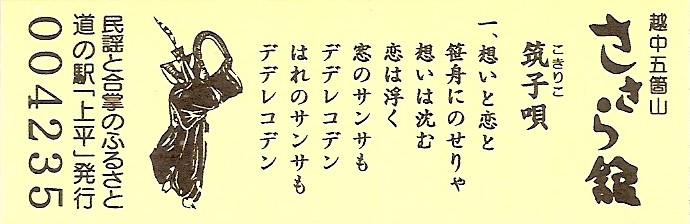 越中五箇山
ささら館
こきりこ
筑子唄
一、想いと恋と
笹舟にのせりゃ
想いは沈む
恋は浮く
窓のサンサも
デデレコデン
はれのサンサも
デデレコデン
民謡と合掌のふるさと
道の駅「上平」発行
004235